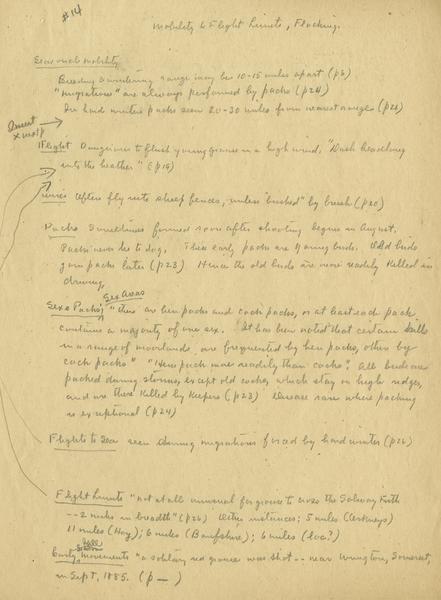 #14
Mobility & Flight Limits, Flocking.
Seasonal mobility
Breeding & wintering range may be 10-15 miles apart (p6)
"migrations" are always performed by packs (p24)
In hard winters packs seen 20-30 miles from nearest range (p26)
Insert
Flight Dangerous to flush young grouse in a high wind. "Dash headlong
into the heather" (p15)
Wires Often fly into sheep fences, unless "bushed" by brush (p20)
Packs Sometimes formed soon after shooting begins in August.
Packs never lie to dog. These early packs are of young birds. Old birds
join packs later (p23) Hence the old birds are more readily killed in
driving.
Sex Areas
Sex & Packs; "there are hen packs and cock packs, or at least each pack
contains a majority of one sex. It has been noted that certain hills
in a range of moorlands are frequented by hen packs, others by
cock packs" "Hens pack more readily than cocks". All birds are
packed during storms, except old cocks, which stay on high ridges,
and are there killed by keepers (p23) Disease rare where packing
is exceptional (p24)
Flights to Sea seen during migrations forced by hard winter (p26)
Flight Limits "not at all unusual for grouse to cross the Solway Firth
-- 2 miles in breadth" (p26) Other instances; 5 miles (Orkneys)
11 miles (Hoy); 6 miles (Banfshire); 6 miles (loc?)
Early movements "a solitary red grouse was shot -- near Wrington, Somerset,
in Sept, 1885. (p —)